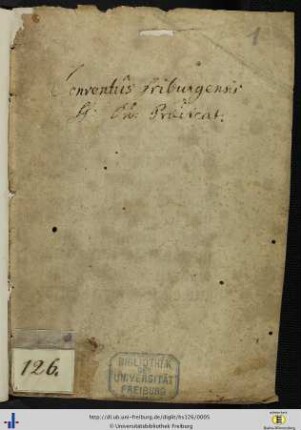 1
Conventus friburgensis
ff. Ord. Praedicat.
126.
BIBLIOTHEK
DER
UNIVERSITÄT
FREIBURG
http://dl.ub.uni-freiburg.de/diglit/hs126/0005
© Universitätsbibliothek Freiburg